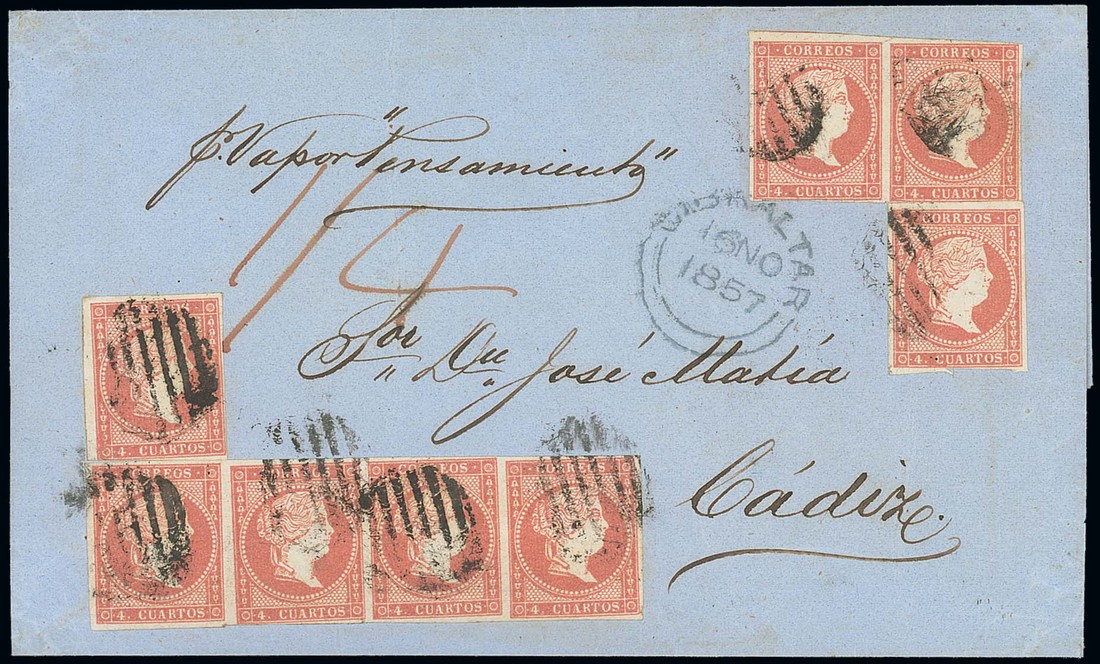 CORREOS CORREOS
4. CUARTOS 4. CUARTOS
p. Vapor "Pensamiento"
CORREOS
4. CUARTOS
GIBRALTAR
16 NO
1857
1/4
4. CUARTOS
Sor Dn José Matía
Cádiz
CORREOS CORREOS CORREOS CORREOS
4. CUARTOS 4. CUARTOS 4. CUARTOS 4. CUARTOS